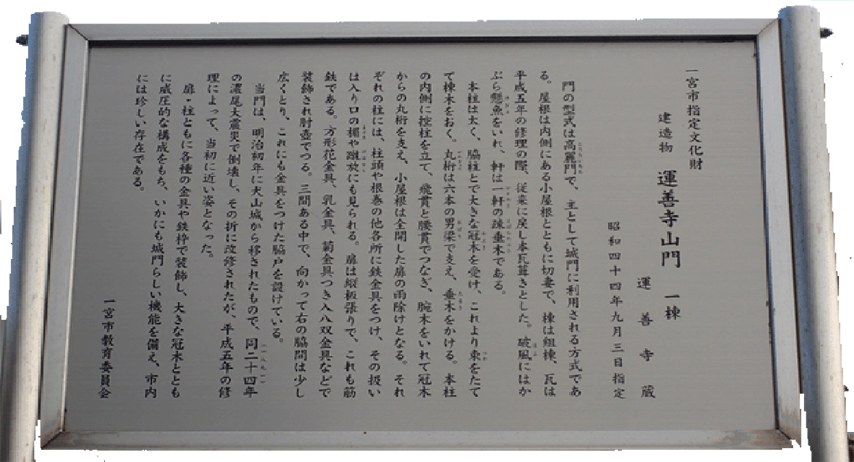 一宮市指定文化財
建造物　運善寺山門　一棟
運善寺蔵
昭和四十四年九月三日指定
門の型式は高麗門で、主として城門に利用される方式であ
る。屋根は内側にある小屋根とともに切妻で、棟は組棟、瓦は
平成五年の修理の際、従来に戻し本瓦葺きとした。破風にはか
ぶら懸魚をいれ、軒は一軒の疎垂木である。
本柱は太く、脇柱とで大きな冠木を受け、これより束をたて
て棟木をおく。丸桁は六本の男梁で支え、垂木をかける。本柱
の内側に控柱を立て、飛貫と腰貫でつなぎ、腕木をいれて冠木
からの丸桁を支え、小屋根は全開した扉の雨除けとなる。それ
ぞれの柱には、柱頭や根巻の他各所に鉄金具をつけ、その扱い
は入り口の楣や蹴放にも見られる。扉は縦板張りで、これも筋
鉄である。方形花金具、乳金具、菊金具つき入八双金具などで
装飾され肘壺でつる。三間ある中で、向かって右の脇間は少し
広くとり、これにも金具をつけた脇戸を設けている。
当門は、明治初年に犬山城から移されたもので、同二十四年
の濃尾大震災で倒壊し、その折に改修されたが、平成五年の修
理によって、当初に近い姿となった。
扉・柱ともに各種の金具や鉄枠で装飾し、大きな冠木ととも
に威圧的な構成をもち、いかにも城門らしい機能を備え、市内
には珍しい存在である。
一宮市教育委員会